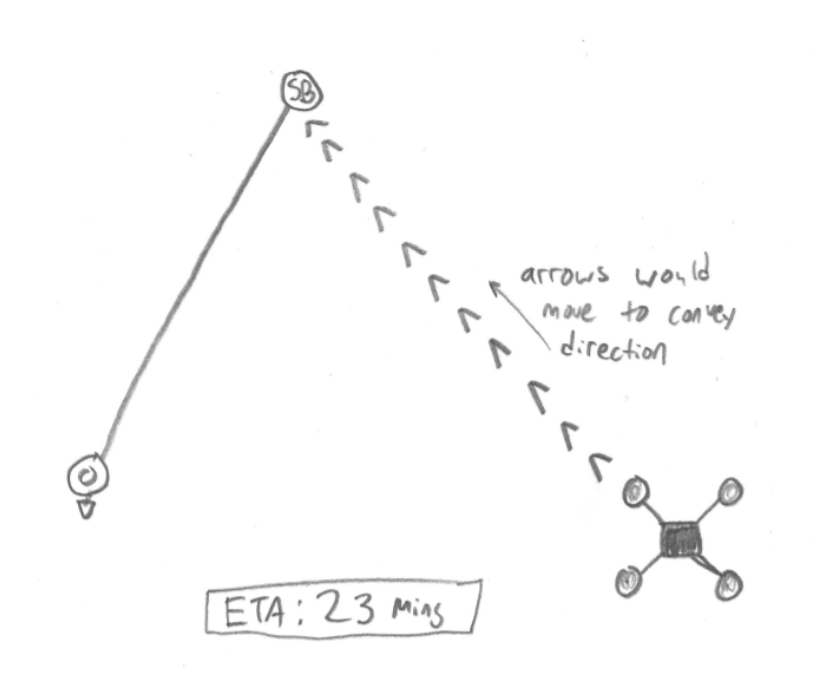 SB
arrows would
move to convey
direction
ETA: 23 mins